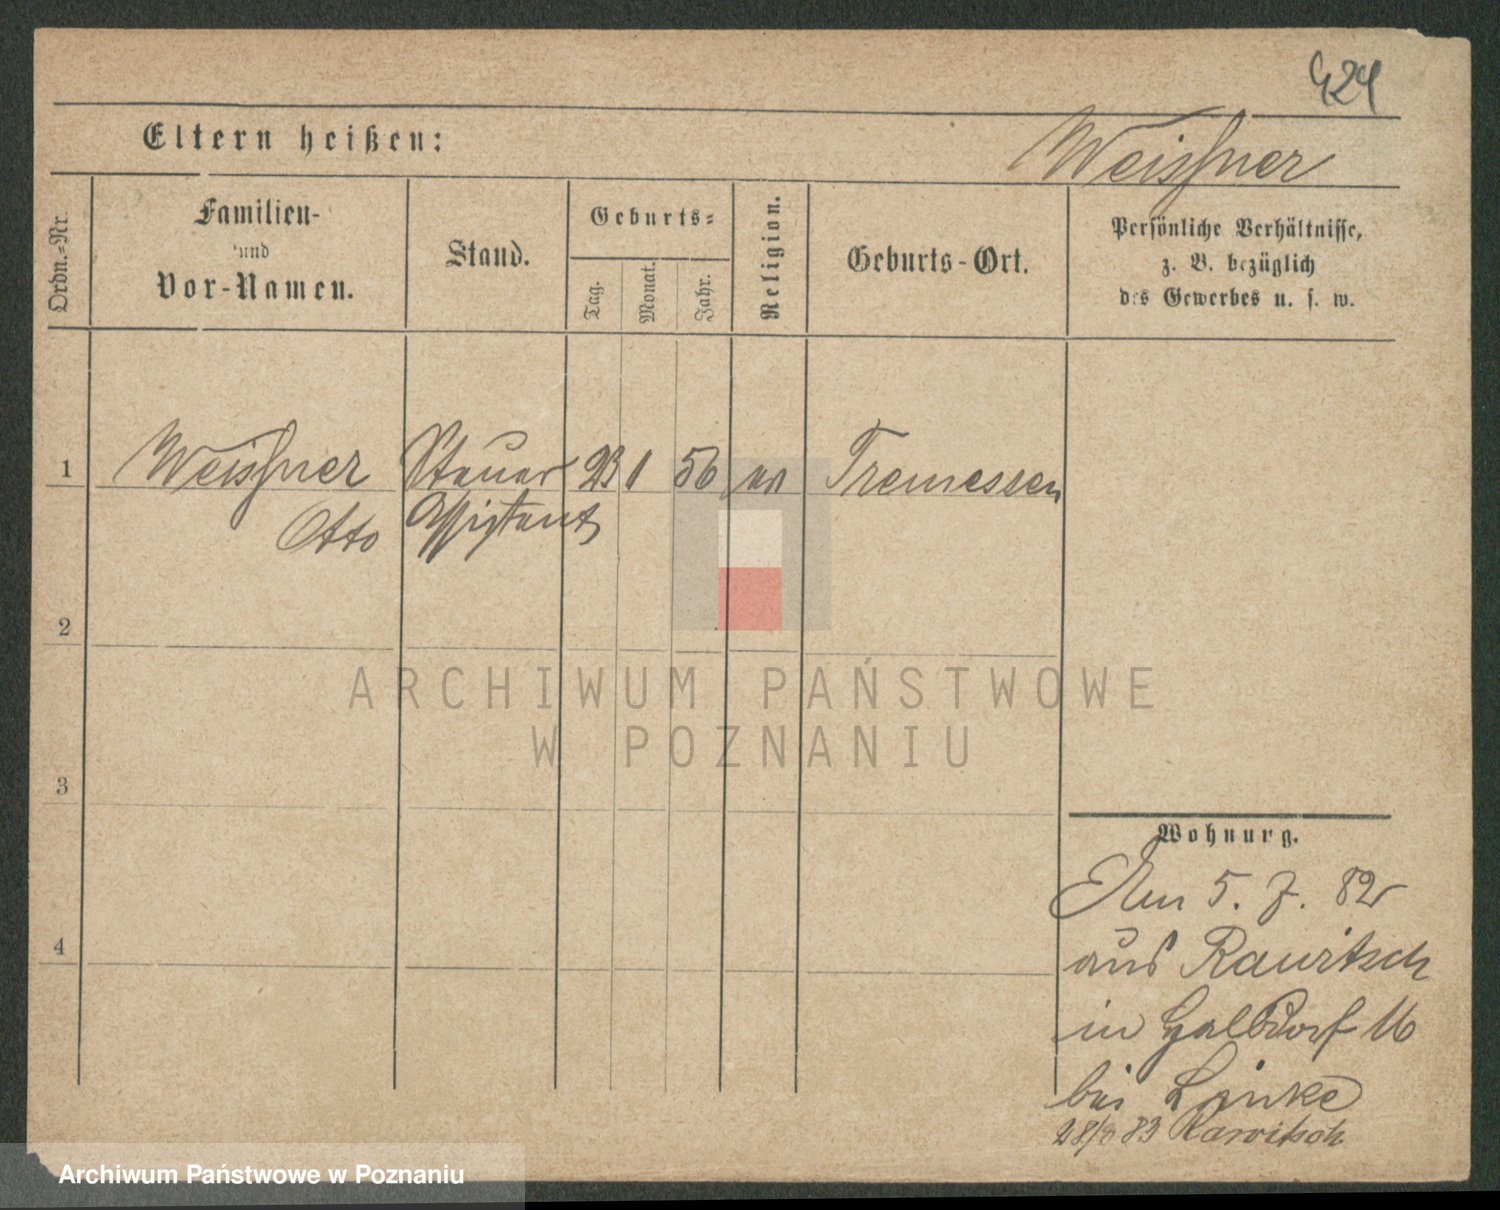 424
Eltern heißen:
Weissner
Ordn.-Nr.
Familien-
und
Vor-Namen.
Stand.
Geburts-
Tag.
Monat.
Jahr.
Religion.
Geburts-Ort.
Persönliche Verhältnisse,
z. B. bezüglich
des Gewerbes u. s. w.
1 Weissner Steuer 23 1 56 ev Tremessen
Otto Assistent
2
ARCHIWUM PAŃSTWOWE
W POZNANIU
3
Wohnung.
Am 5. 7. 82
4
aus Rawitsch
in Halbdorf 16
bei Linke
28/8 83 Rawitsch
Archiwum Państwowe w Poznaniu